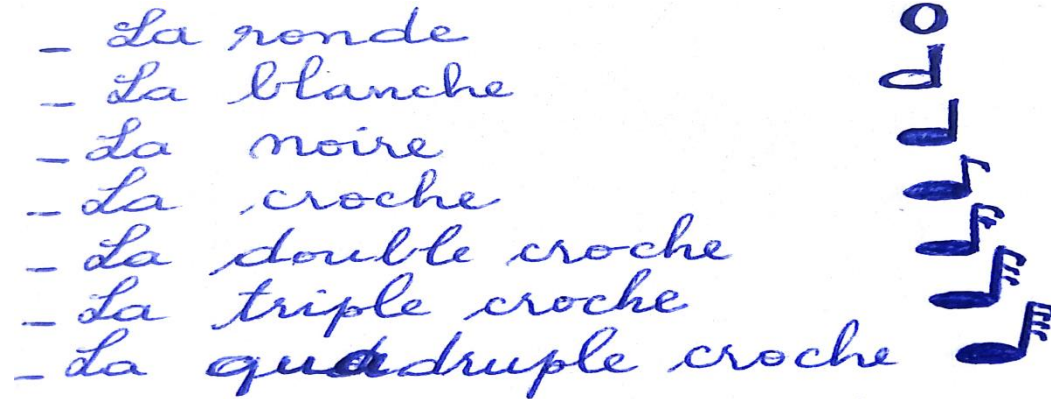 _ La ronde
_ La blanche
_ La noire
_ La croche
_ La double croche
_ La triple croche
_ La quadruple croche